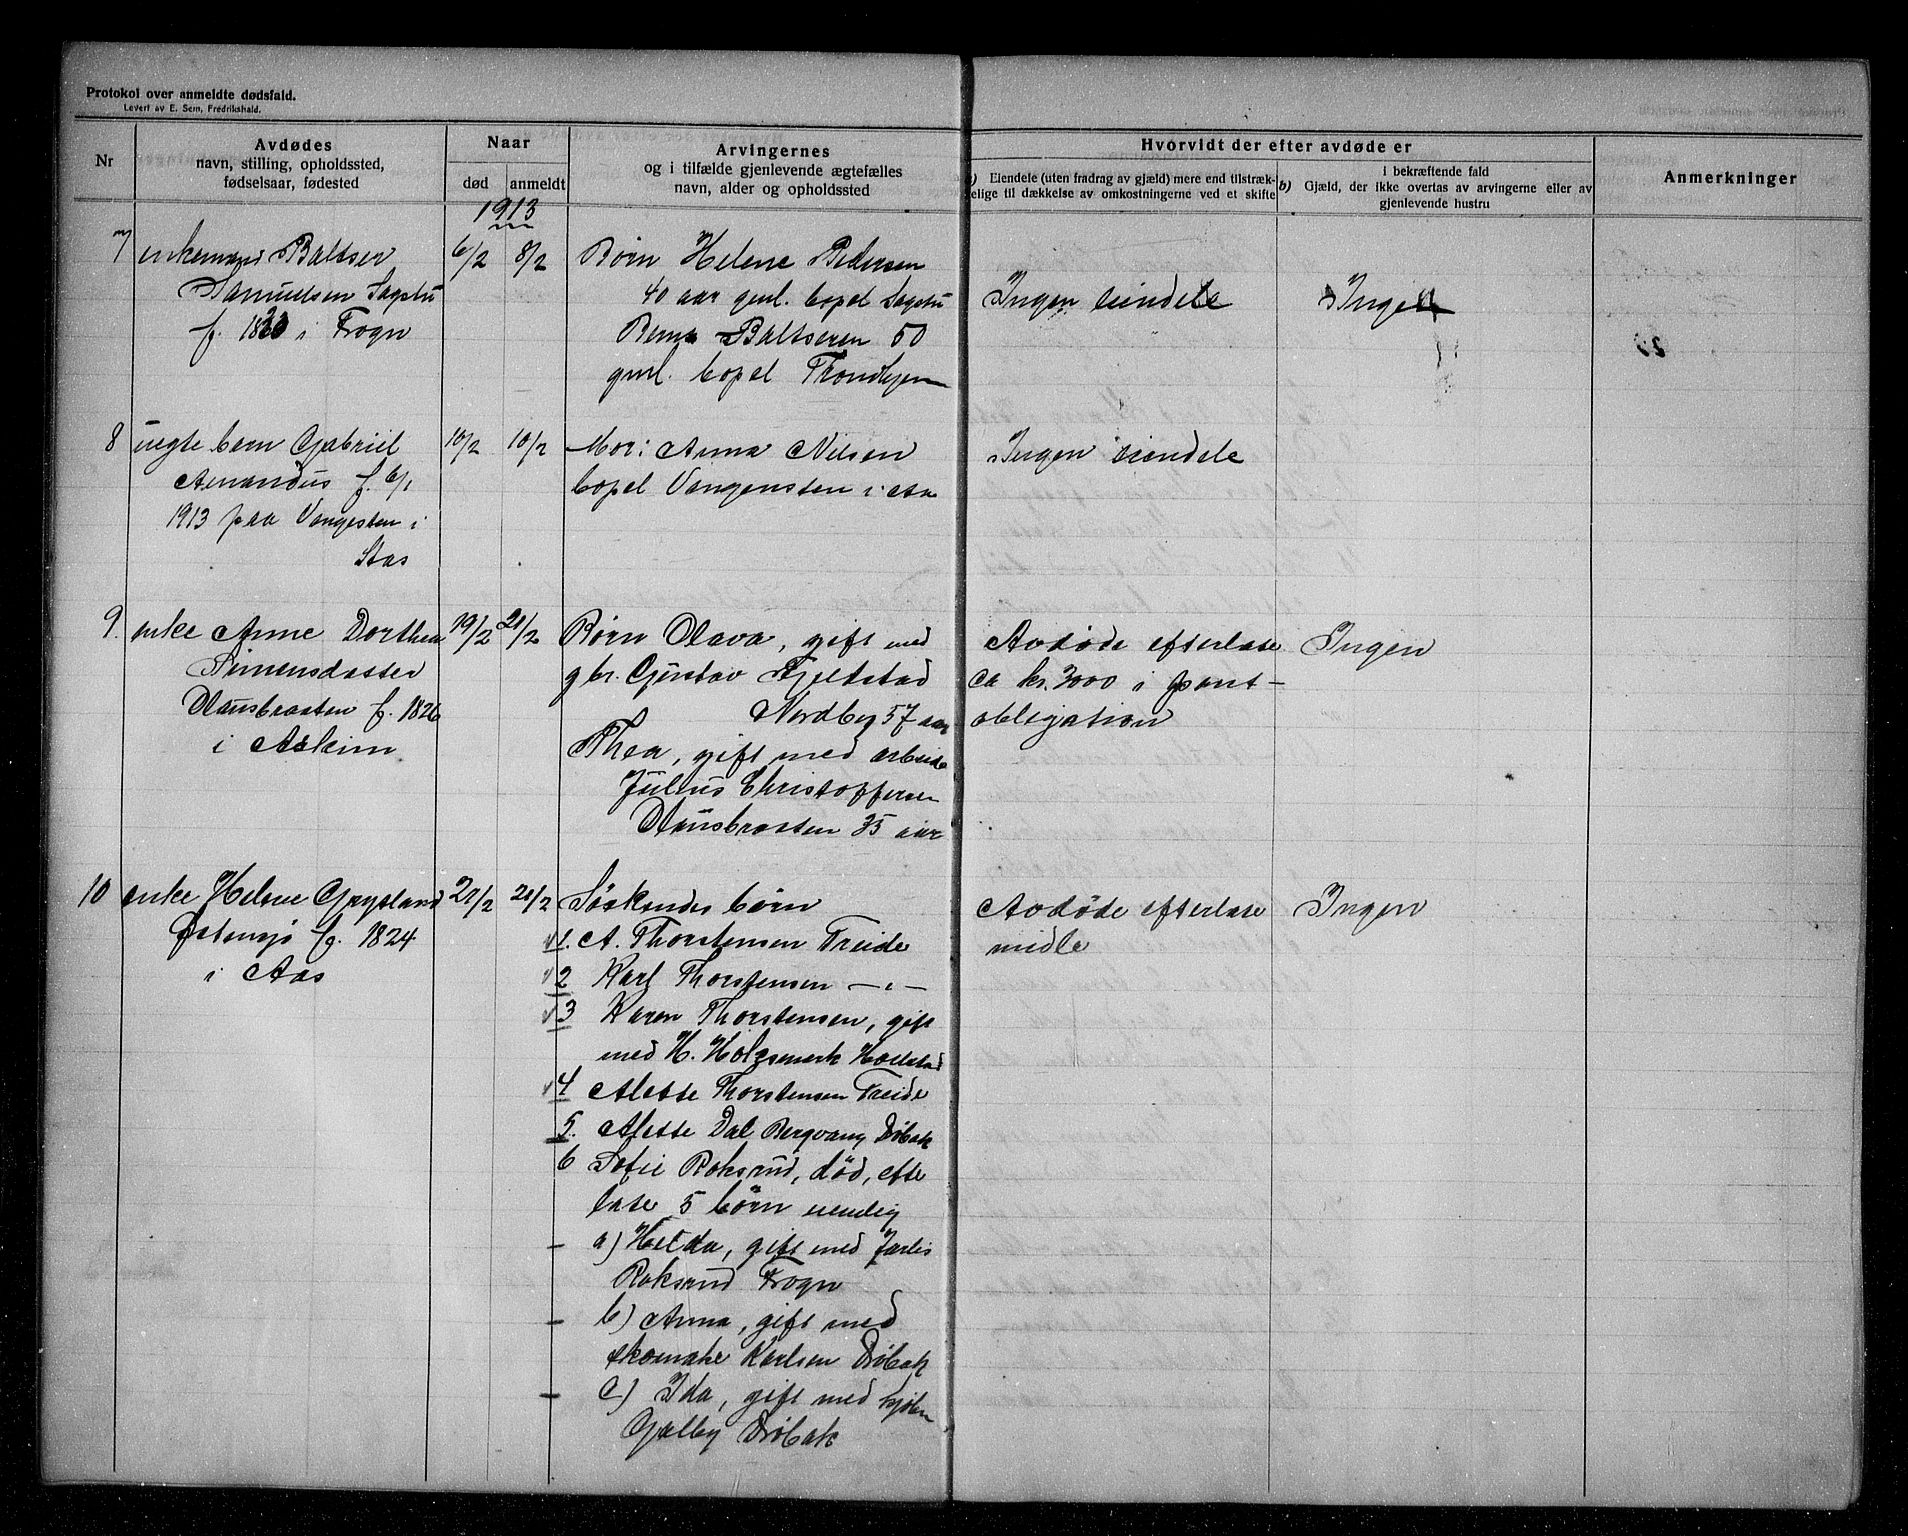 Protokol over anmeldte dødsfald.
Levert av E. Sem, Fredrikshald.
Nr
Avdødes
navn, stilling, opholdssted,
fødselsaar, fødested
Naar
død
anmeldt
Arvingernes
og i tilfælde gjenlevende ægtefælles
navn, alder og opholdssted
Hvorvidt der efter avdøde er
a) Eiendele (uten fradrag av gjæld) mere end tilstræk-
kelige til dækkelse av omkostningerne ved et skifte
b)
i bekræftende fald
Gjæld, der ikke overtas av arvingerne eller av
gjenlevende hustru
Anmerkninger
1913
7 enkemand Baltser
Samuelsen Sagstu
f. 1830 i Frogn
6/2 8/2
Børn Helene Pedersen
40 aar gml. bopel Sagstu
Baltsersen 50
gml. bopel Trondhjem
Ingen eiendele
Ingen
8 uegte barn Gabriel
Amandus f. 6/1
1913 paa Vangesten i
Aas
10/2 10/2
Mor: Anna Nilsen
bopel Vangensten i Aas
Ingen eiendele
9. enke Anne Dorthea
Simensdatter
Olausbraaten f. 1826
i Askim
19/2 21/2
Børn Olava, gift med
gbr. Gustav Fjeldstad
Nordby 57 aar
Thea, gift med arbeide
Julius Christoffersen
Olausbraaten 35 aar
Avdøde efterlate
ca kr. 3000 i pant-
obligation
Ingen
10 enke Helene Grysland
Østensjø f. 1824
i Aas
27/2 28/2
Søskendes børn
1. A. Thorstensen Treide
2 Karl Thorstensen — " —
3 Karen Thorstensen, gift
med H. Holgsmerk
4 Alette Thorstensen Treide
5. Alette Dal Bergvang Drøbak
6 Sofie Roksrud, død, efte
late 5 børn nemlig
a) Helda, gift med Jarlis
Roksrud Frogn
b) Anna, gift med
skomake Karlsen Drøbak
c) Ida, gift med
Galby Drøbak
Avdøde efterlate
midle
Ingen